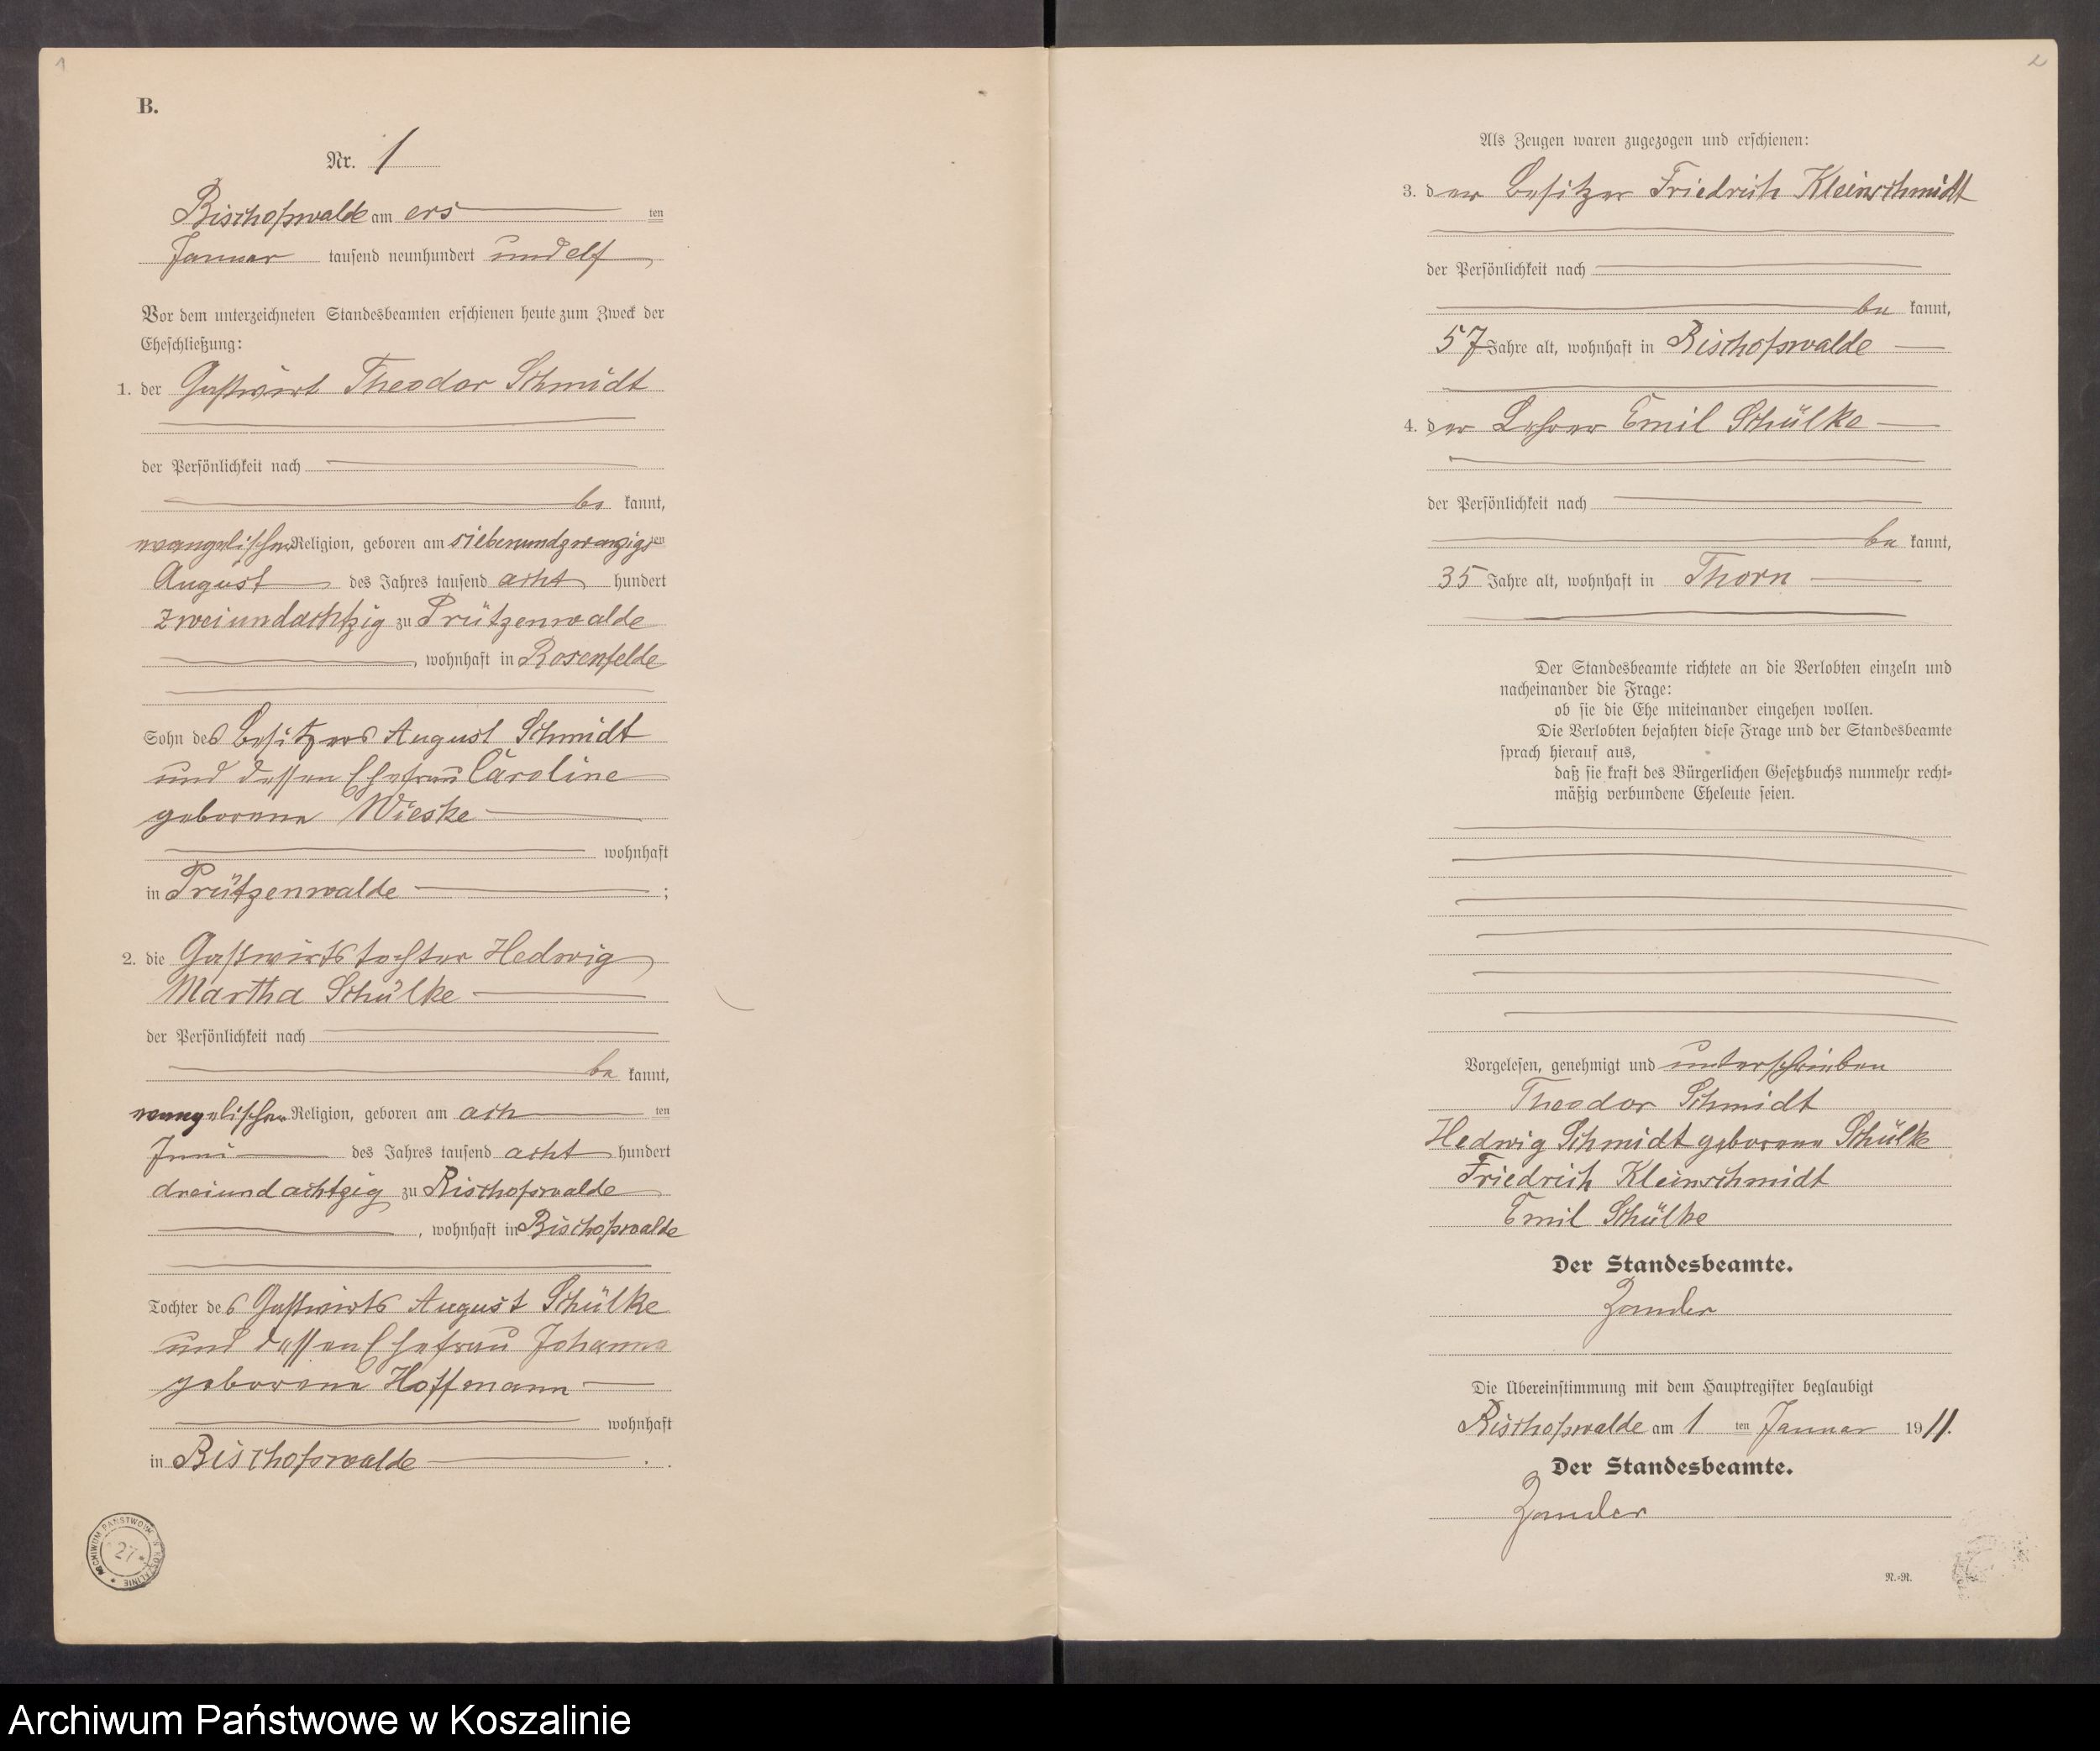 1
B.
Nr. 1
Bischofswalde am ers ten
Januar tausend neunhundert und elf
Vor dem unterzeichneten Standesbeamten erschienen heute zum Zweck der
Eheschließung:
1. der Gastwirt Theodor Schmidt
der Persönlichkeit nach
be kannt,
evangelischer Religion, geboren am siebenundzwanzigs ten
August des Jahres tausend acht hundert
zweiundachtzig zu Prützenwalde
, wohnhaft in Rosenfelde
Sohn des Besitzers August Schmidt
und dessen Ehefrau Caroline
geborene Wieske
wohnhaft
in Prützenwalde ;
2. die Gastwirtstochter Hedwig
Martha Schülke
der Persönlichkeit nach
be kannt,
evangelischer Religion, geboren am ach ten
Juni des Jahres tausend acht hundert
dreiundachtzig zu Bischofswalde
, wohnhaft in Bischofswalde
Tochter des Gastwirts August Schülke
und dessen Ehefrau Johanna
geborene Hoffmann
wohnhaft
in Bischofswalde .
ARCHIWUM PAŃSTWOWE W KOSZALINIE
27
2
Als Zeugen waren zugezogen und erschienen:
3. der Besitzer Friedrich Kleinschmidt
der Persönlichkeit nach
be kannt,
57 Jahre alt, wohnhaft in Bischofswalde
4. der Lehrer Emil Schülke
der Persönlichkeit nach
be kannt,
35 Jahre alt, wohnhaft in Thorn
Der Standesbeamte richtete an die Verlobten einzeln und
nacheinander die Frage:
ob sie die Ehe miteinander eingehen wollen.
Die Verlobten bejahten diese Frage und der Standesbeamte
sprach hierauf aus,
daß sie kraft des Bürgerlichen Gesetzbuchs nunmehr recht-
mäßig verbundene Eheleute seien.
Vorgelesen, genehmigt und unterschrieben
Theodor Schmidt
Hedwig Schmidt geborene Schülke
Friedrich Kleinschmidt
Emil Schülke
Der Standesbeamte.
Zander
Die Übereinstimmung mit dem Hauptregister beglaubigt
Bischofswalde am 1 ten Januar 19 11.
Der Standesbeamte.
Zander
R.-R.
Archiwum Państwowe w Koszalinie